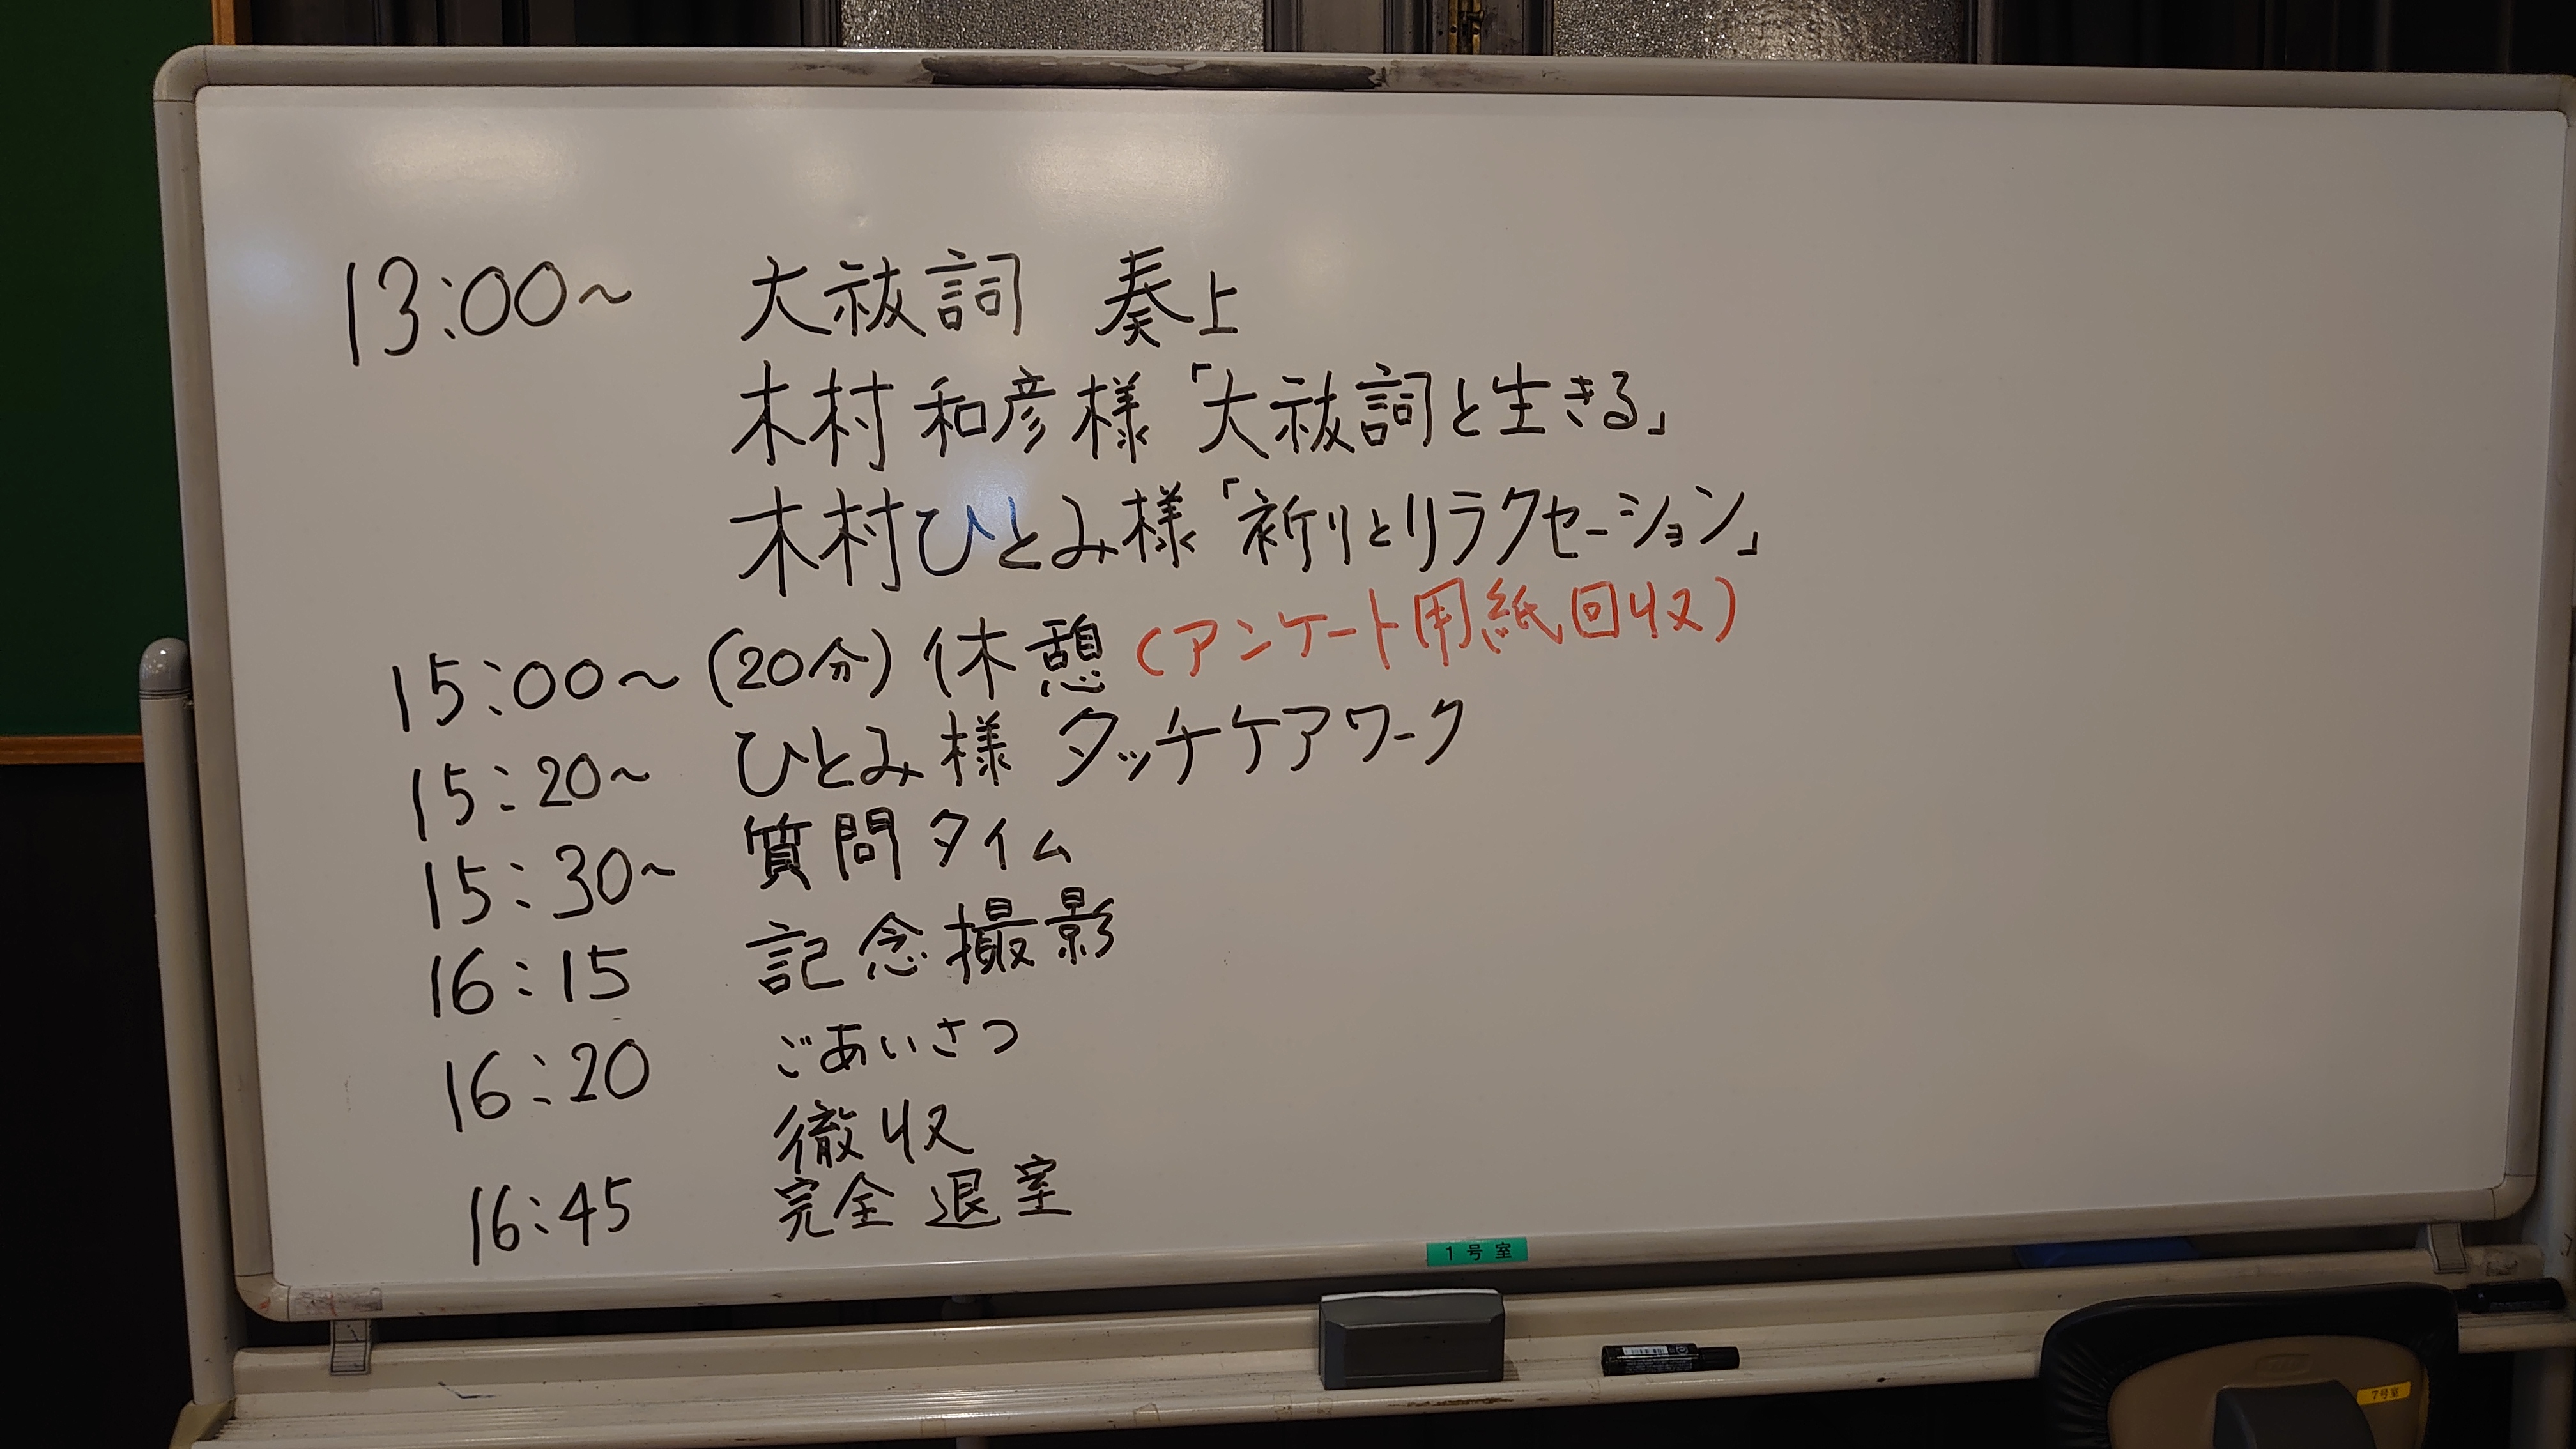 13:00～ 大祓詞 奏上
木村和彦様「大祓詞と生きる」
木村ひとみ様「祈りとリラクセーション」
15:00～(20分)休憩(アンケート用紙回収)
15:20～ ひとみ様 タッチケアワーク
15:30～ 質問タイム
16:15 記念撮影
16:20 ごあいさつ
徹収
16:45 完全退室
1号室
7号室